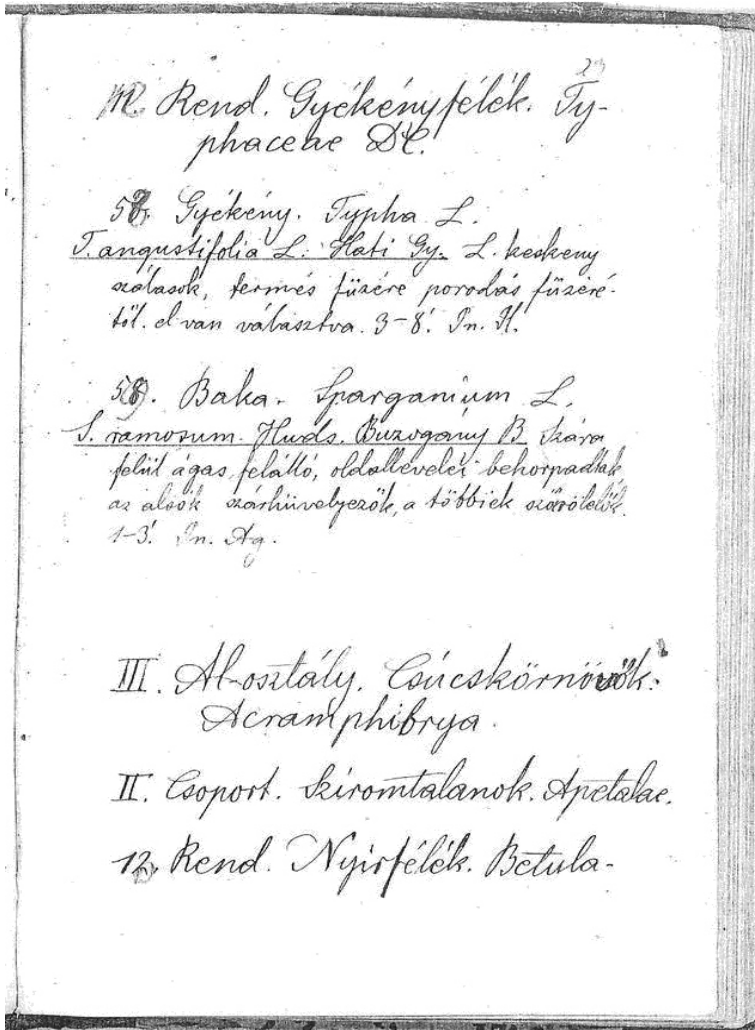 29
11. Rend. Gyékényfélék. Ty-
phaceae DC.
57. Gyékény. Typha L.
T. angustifolia L. Hati Gy. L. keskeny
szálasok, termés füzére porodás füzéré-
től. el van választva. 3-8'. Jn. Jl.
58. Baka. Sparganium L.
S. ramosum. Huds. Buzogány B Szára
felül ágas, felálló, oldallevelei behorpadtak
az alsók szárhüvelyezők, a többiek szárölelők.
1-3'. Jn. Ag.
III. Al-osztály. Csúcskörnövők.
Acramphibrya.
II. Csoport. Sziromtalanok. Apetalae.
12. Rend. Nyirfélék. Betula-